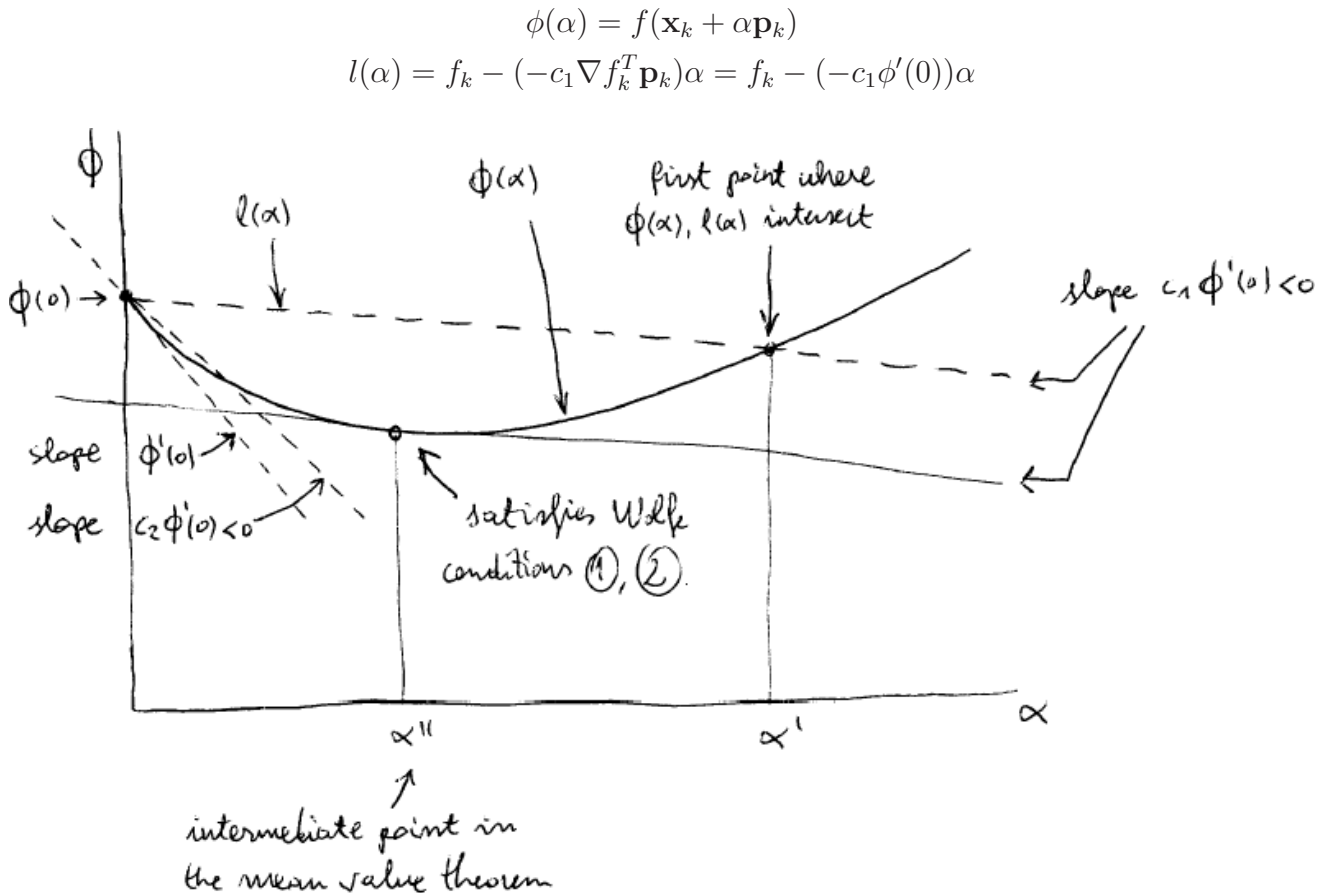 ϕ(α) = f(𝐱ₖ + α𝐩ₖ)
l(α) = fₖ − (−c₁∇fₖᵀ𝐩ₖ)α = fₖ − (−c₁ϕ′(0))α
ϕ
l(α)
ϕ(α)
first point where
ϕ(α), l(α) intersect
ϕ(0)
slope c₁ ϕ'(0) < 0
slope ϕ'(0)
slope c₂ϕ'(0) < 0
satisfies Wolfe
conditions ①, ②.
α''
α'
α
intermediate point in
the mean value theorem